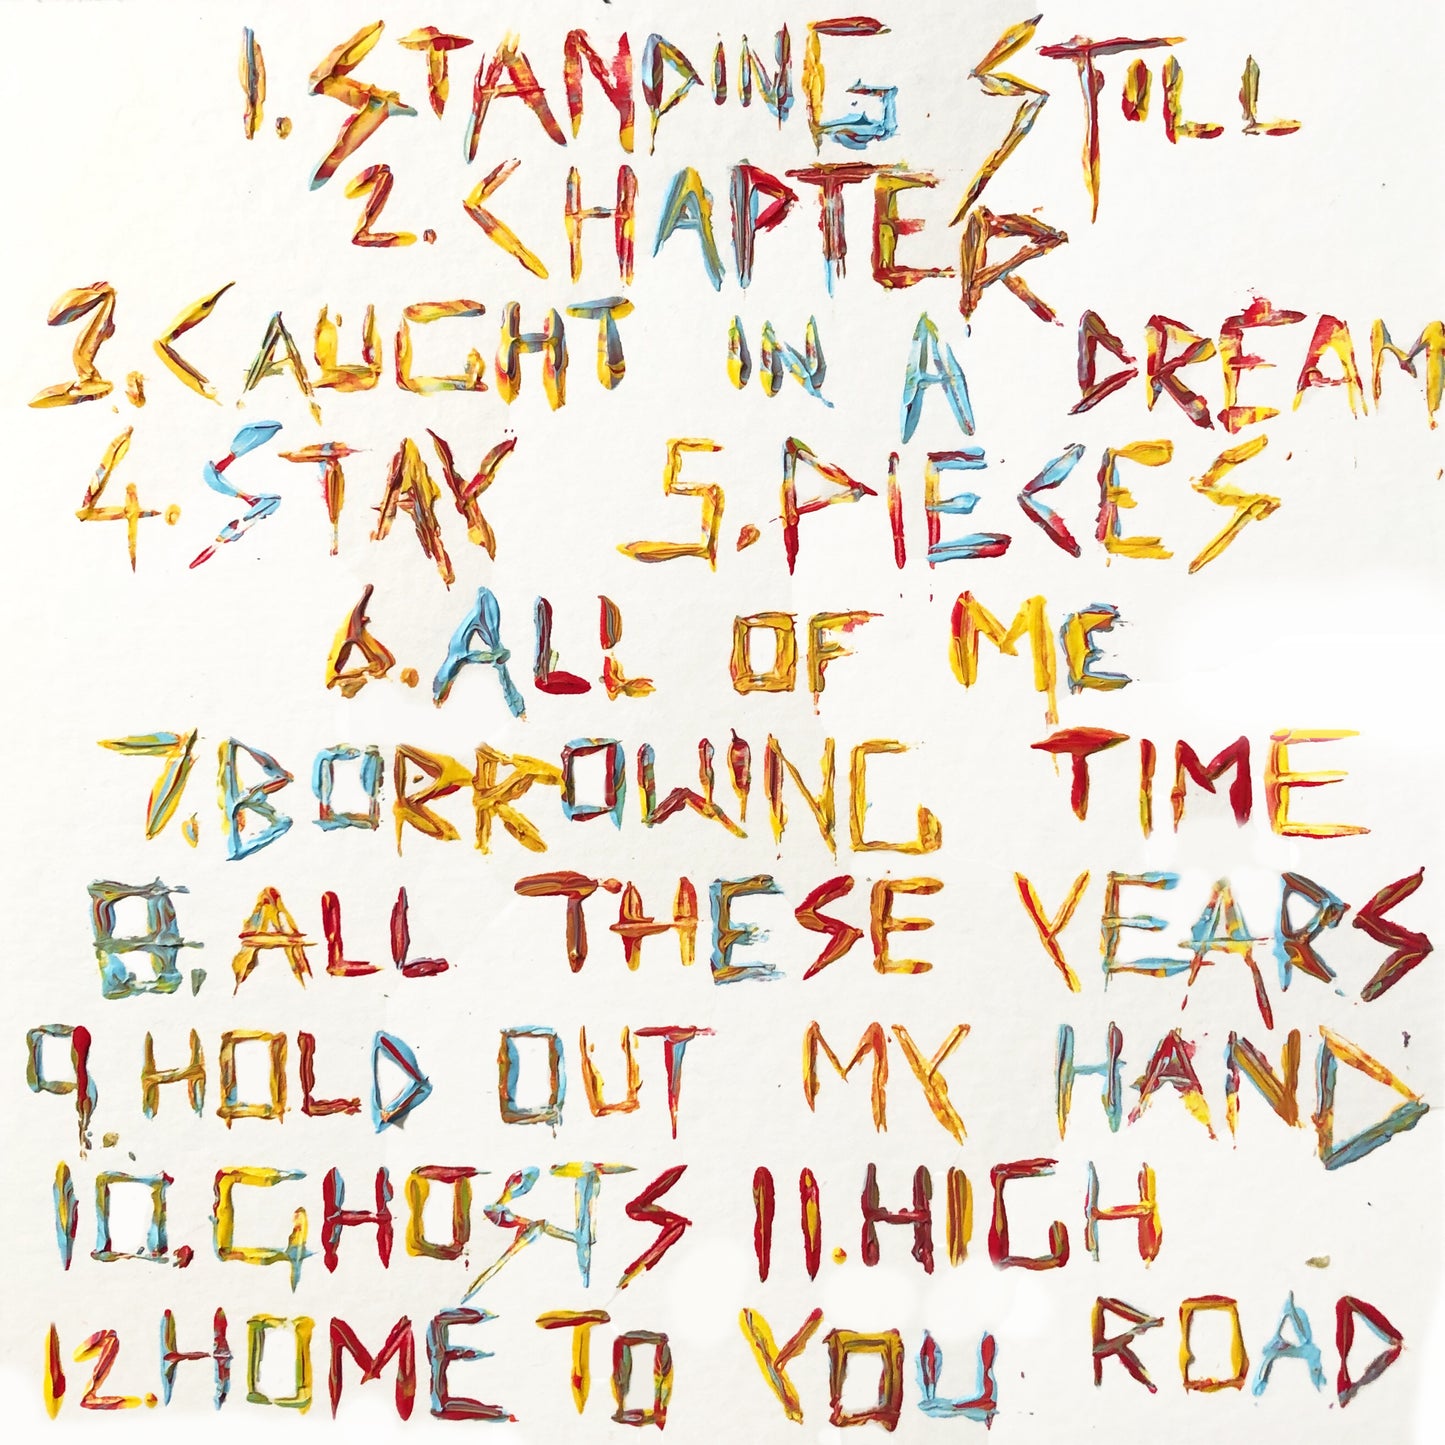 1. STANDING STILL
2. CHAPTER
3. CAUGHT IN A DREAM
4. STAY 5. PIECES
6. ALL OF ME
7. BORROWING TIME
8. ALL THESE YEARS
9. HOLD OUT MY HAND
10. GHOSTS 11. HIGH ROAD
12. HOME TO YOU